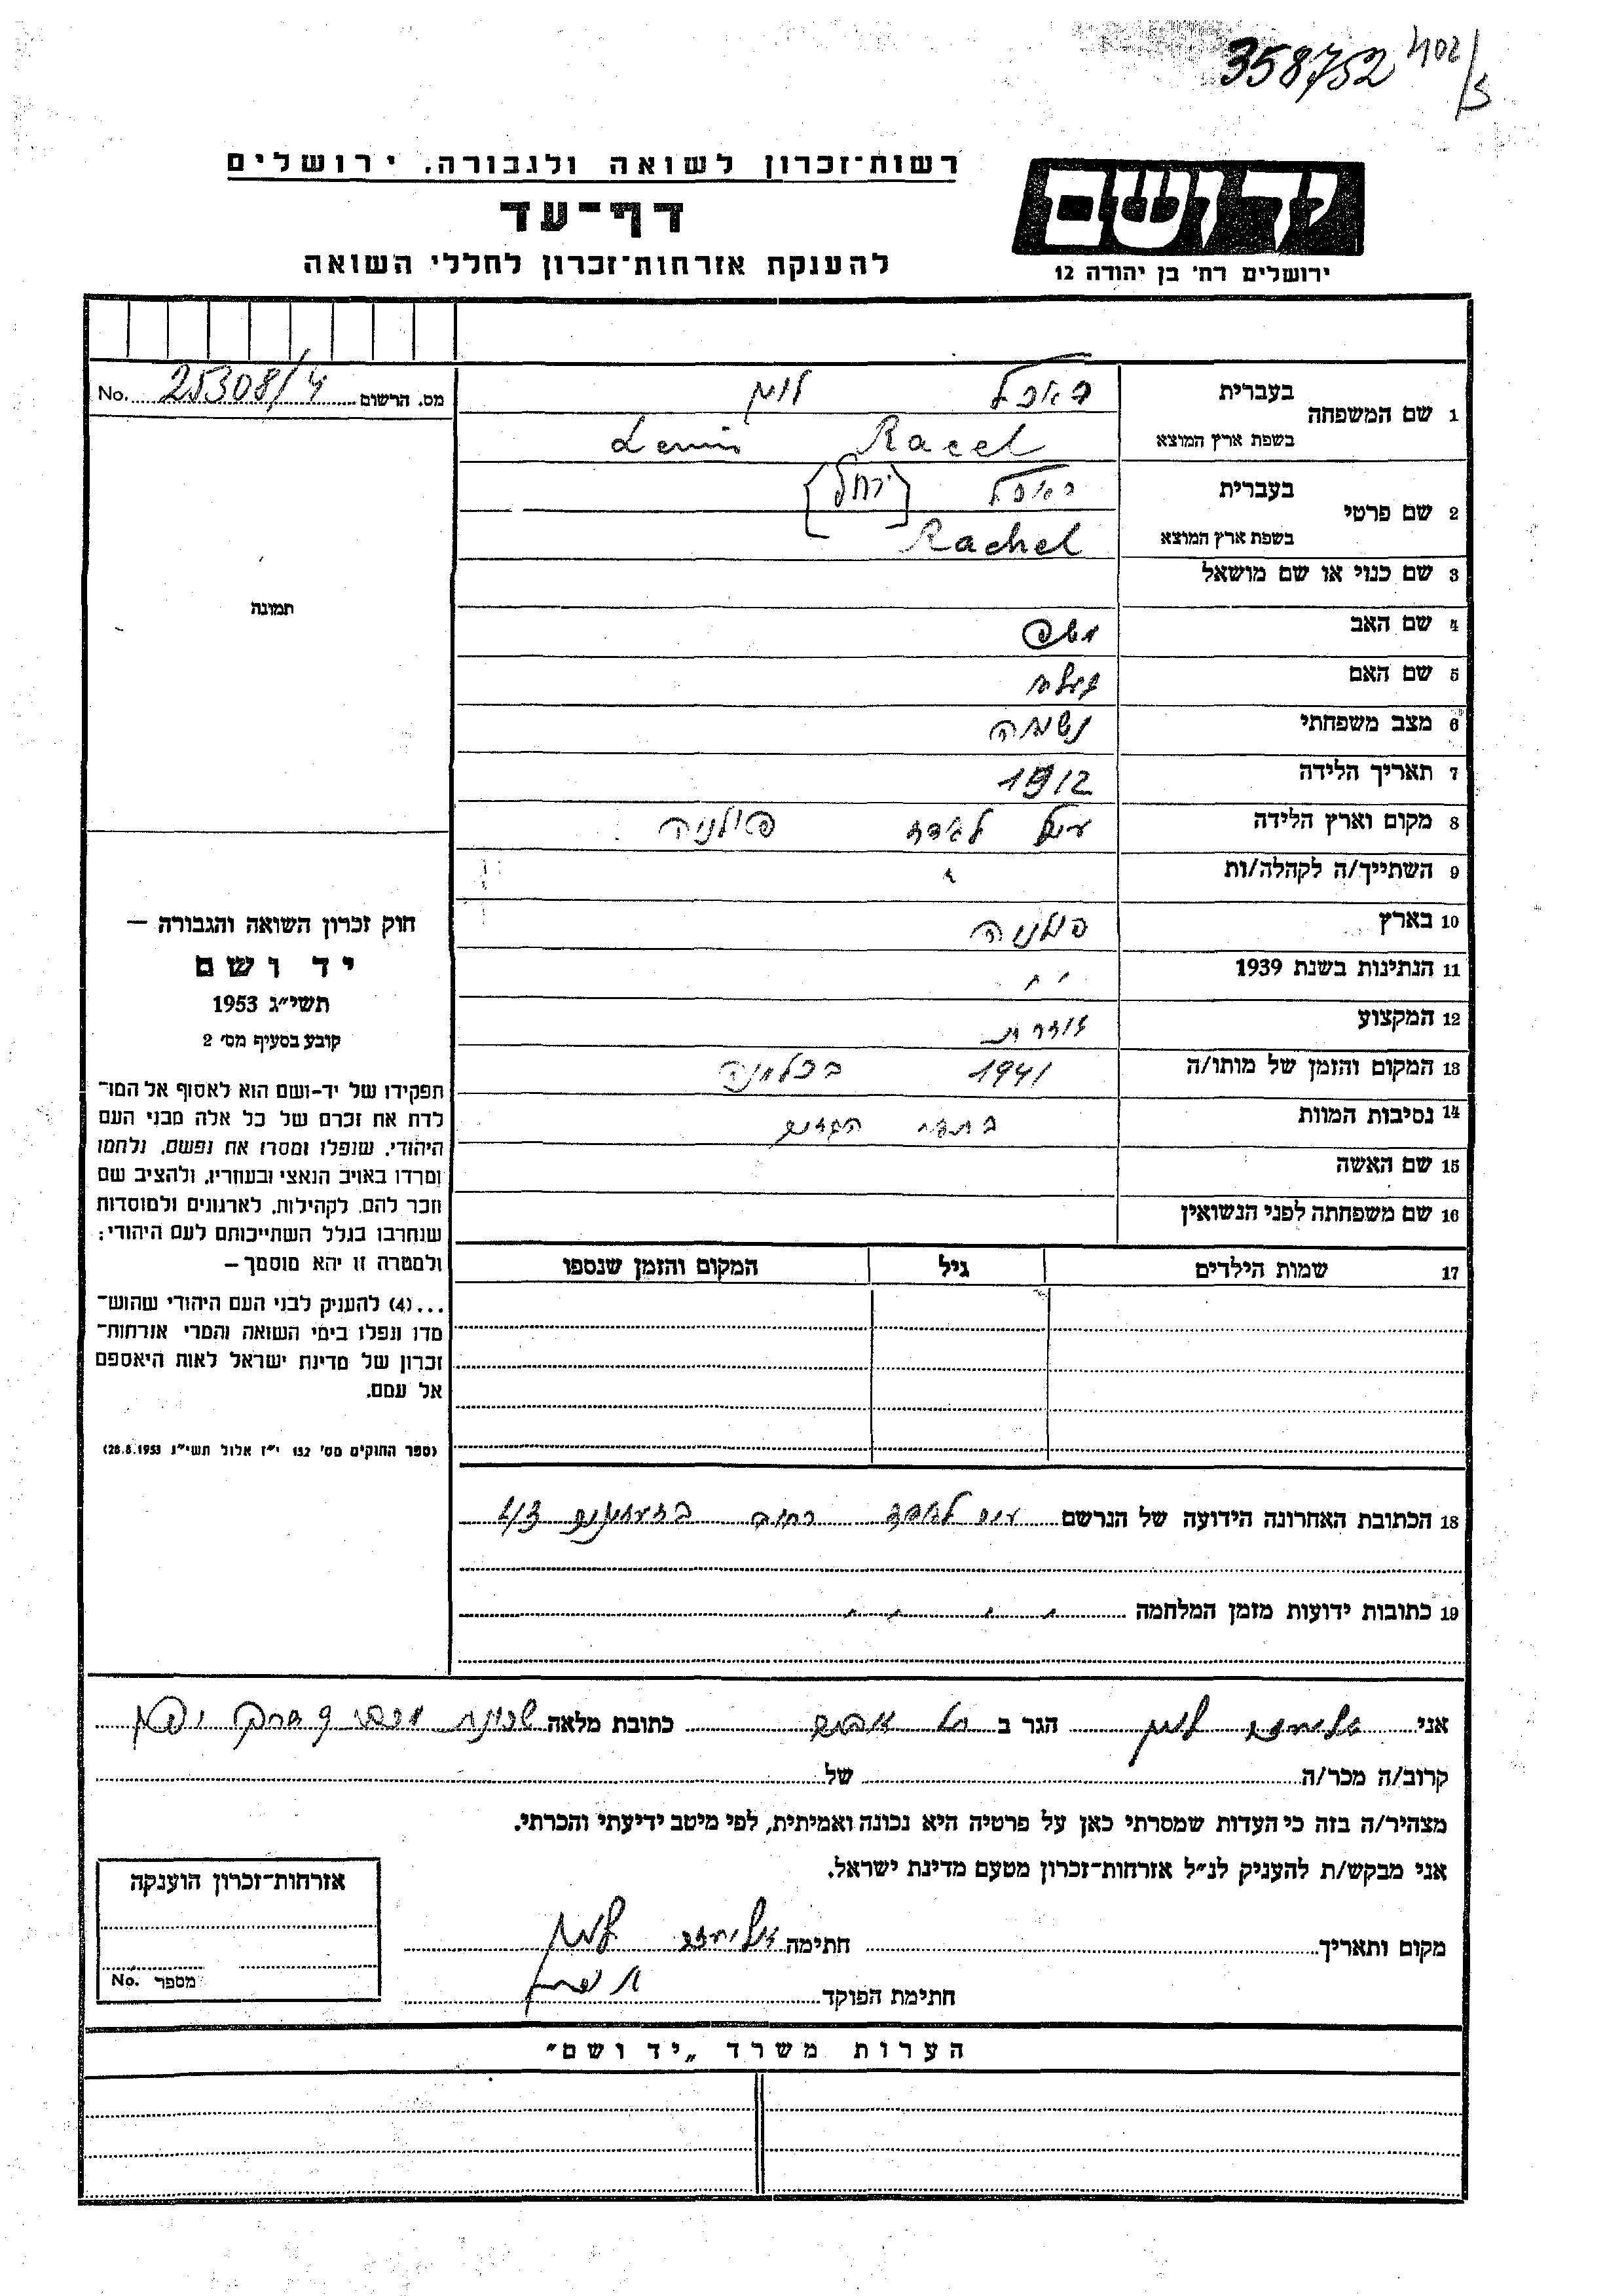 358752 402/5
רשות־זכרון לשואה ולגבורה, ירושלים
דף־עד
להענקת אזרחות־זכרון לחללי השואה
יד ושם
ירושלים רח׳ בן יהודה 12
מס. הרשום 25308/4 No.
1 שם המשפחה
בעברית לוין
בשפת ארץ המוצא Racel Lewin
2 שם פרטי
בעברית [רחל]
בשפת ארץ המוצא Rachel
3 שם כנוי או שם מושאל
4 שם האב משה
5 שם האם
6 מצב משפחתי נשואה
7 תאריך הלידה 1912
8 מקום וארץ הלידה פולניה
9 השתייך/ה לקהלה/ות
10 בארץ פולניה
11 הנתינות בשנת 1939
12 המקצוע
13 המקום והזמן של מותו/ה 1941
14 נסיבות המוות
15 שם האשה
16 שם משפחתה לפני הנשואין
17 שמות הילדים גיל המקום והזמן שנספו
18 הכתובת האחרונה הידועה של הנרשם רחוב
19 כתובות ידועות מזמן המלחמה
תמונה
חוק זכרון השואה והגבורה —
יד ושם
תשי״ג 1953
קובע בסעיף מס׳ 2
תפקידו של יד-ושם הוא לאסוף אל המו־
לדת את זכרם של כל אלה מבני העם
היהודי, שנפלו ומסרו את נפשם, נלחמו
ומרדו באויב הנאצי ובעוזריו, ולהציב שם
וזכר להם, לקהילות, לארגונים ולמוסדות
שנחרבו בגלל השתייכותם לעם היהודי;
ולמטרה זו יהא מוסמך —
...(4) להעניק לבני העם היהודי שהוש־
מדו ונפלו בימי השואה והמרי אזרחות־
זכרון של מדינת ישראל לאות היאספם
אל עמם.
(ספר החוקים מס׳ 132 י״ז אלול תשי״ג 28.8.1953)
אני לוין הגר ב תל אביב כתובת מלאה שכונת
קרוב/ה מכר/ה של
מצהיר/ה בזה כי העדות שמסרתי כאן על פרטיה היא נכונה ואמיתית, לפי מיטב ידיעתי והכרתי.
אני מבקש/ת להעניק לנ״ל אזרחות־זכרון מטעם מדינת ישראל.
מקום ותאריך חתימה לוין
חתימת הפוקד
אזרחות־זכרון הוענקה
מספר No.
הערות משרד „יד ושם״